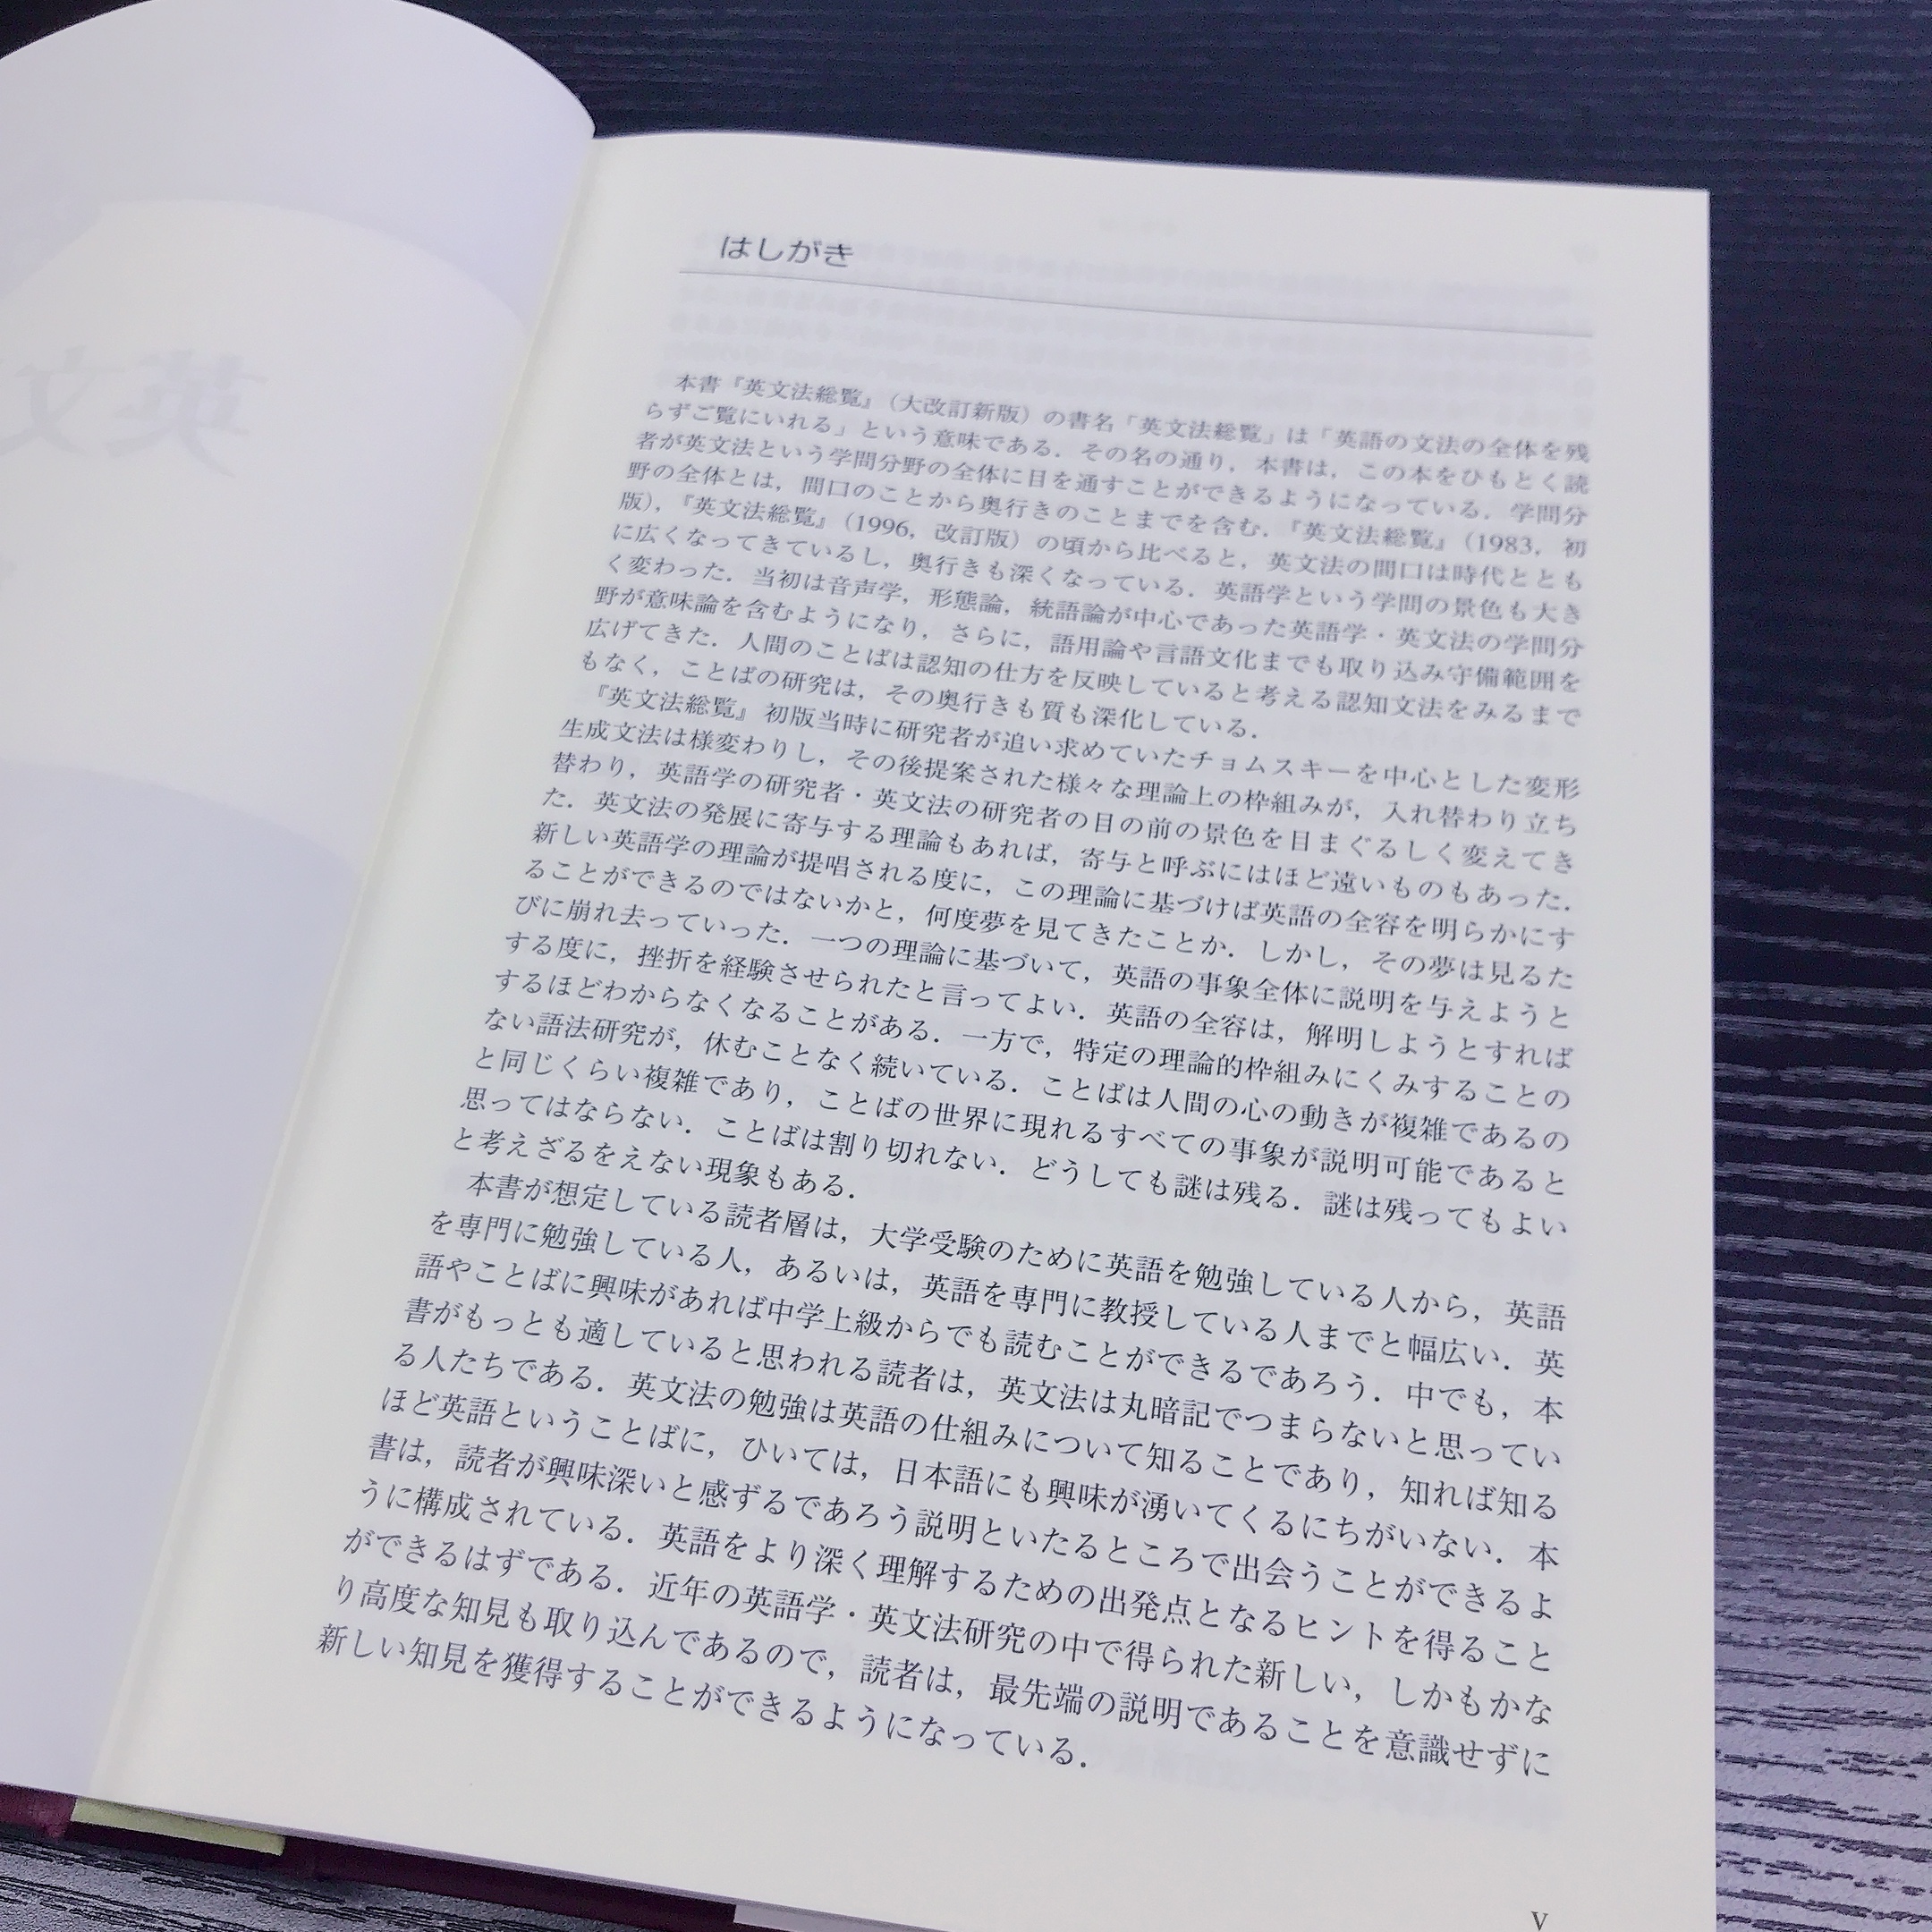 はしがき
本書『英文法総覧』(大改訂新版)の書名「英文法総覧」は「英語の文法の全体を残
らずご覧にいれる」という意味である．その名の通り，本書は，この本をひもとく読
者が英文法という学問分野の全体に目を通すことができるようになっている．学問分
野の全体とは，間口のことから奥行きのことまでを含む．『英文法総覧』(1983，初
版)，『英文法総覧』(1996，改訂版)の頃から比べると，英文法の間口は時代ととも
に広くなってきているし，奥行きも深くなっている．英語学という学問の景色も大き
く変わった．当初は音声学，形態論，統語論が中心であった英語学・英文法の学問分
野が意味論を含むようになり，さらに，語用論や言語文化までも取り込み守備範囲を
広げてきた．人間のことばは認知の仕方を反映していると考える認知文法をみるまで
もなく，ことばの研究は，その奥行きも質も深化している．
『英文法総覧』初版当時に研究者が追い求めていたチョムスキーを中心とした変形
生成文法は様変わりし，その後提案された様々な理論上の枠組みが，入れ替わり立ち
替わり，英語学の研究者・英文法の研究者の目の前の景色を目まぐるしく変えてき
た．英文法の発展に寄与する理論もあれば，寄与と呼ぶにはほど遠いものもあった．
新しい英語学の理論が提唱される度に，この理論に基づけば英語の全容を明らかにす
ることができるのではないかと，何度夢を見てきたことか．しかし，その夢は見るた
びに崩れ去っていった．一つの理論に基づいて，英語の事象全体に説明を与えようと
する度に，挫折を経験させられたと言ってよい．英語の全容は，解明しようとすれば
するほどわからなくなることがある．一方で，特定の理論的枠組みにくみすることの
ない語法研究が，休むことなく続いている．ことばは人間の心の動きが複雑であるの
と同じくらい複雑であり，ことばの世界に現れるすべての事象が説明可能であると
思ってはならない．ことばは割り切れない．どうしても謎は残る．謎は残ってもよい
と考えざるをえない現象もある．
本書が想定している読者層は，大学受験のために英語を勉強している人から，英語
を専門に勉強している人，あるいは，英語を専門に教授している人までと幅広い．英
語やことばに興味があれば中学上級からでも読むことができるであろう．中でも，本
書がもっとも適していると思われる読者は，英文法は丸暗記でつまらないと思ってい
る人たちである．英文法の勉強は英語の仕組みについて知ることであり，知れば知る
ほど英語ということばに，ひいては，日本語にも興味が湧いてくるにちがいない．本
書は，読者が興味深いと感ずるであろう説明といたるところで出会うことができるよ
うに構成されている．英語をより深く理解するための出発点となるヒントを得ること
ができるはずである．近年の英語学・英文法研究の中で得られた新しい，しかもかな
り高度な知見も取り込んであるので，読者は，最先端の説明であることを意識せずに
新しい知見を獲得することができるようになっている．
v
英文